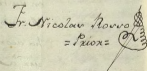 Fr. Nicolas Rosso
= Prior =